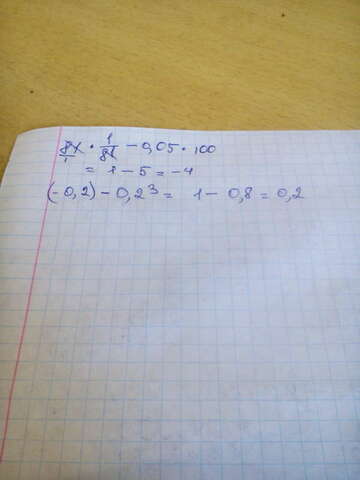 81/1 · 1/81 - 0,05 · 100
= 1 - 5 = -4
(-0,2) - 0,2³ = 1 - 0,8 = 0,2